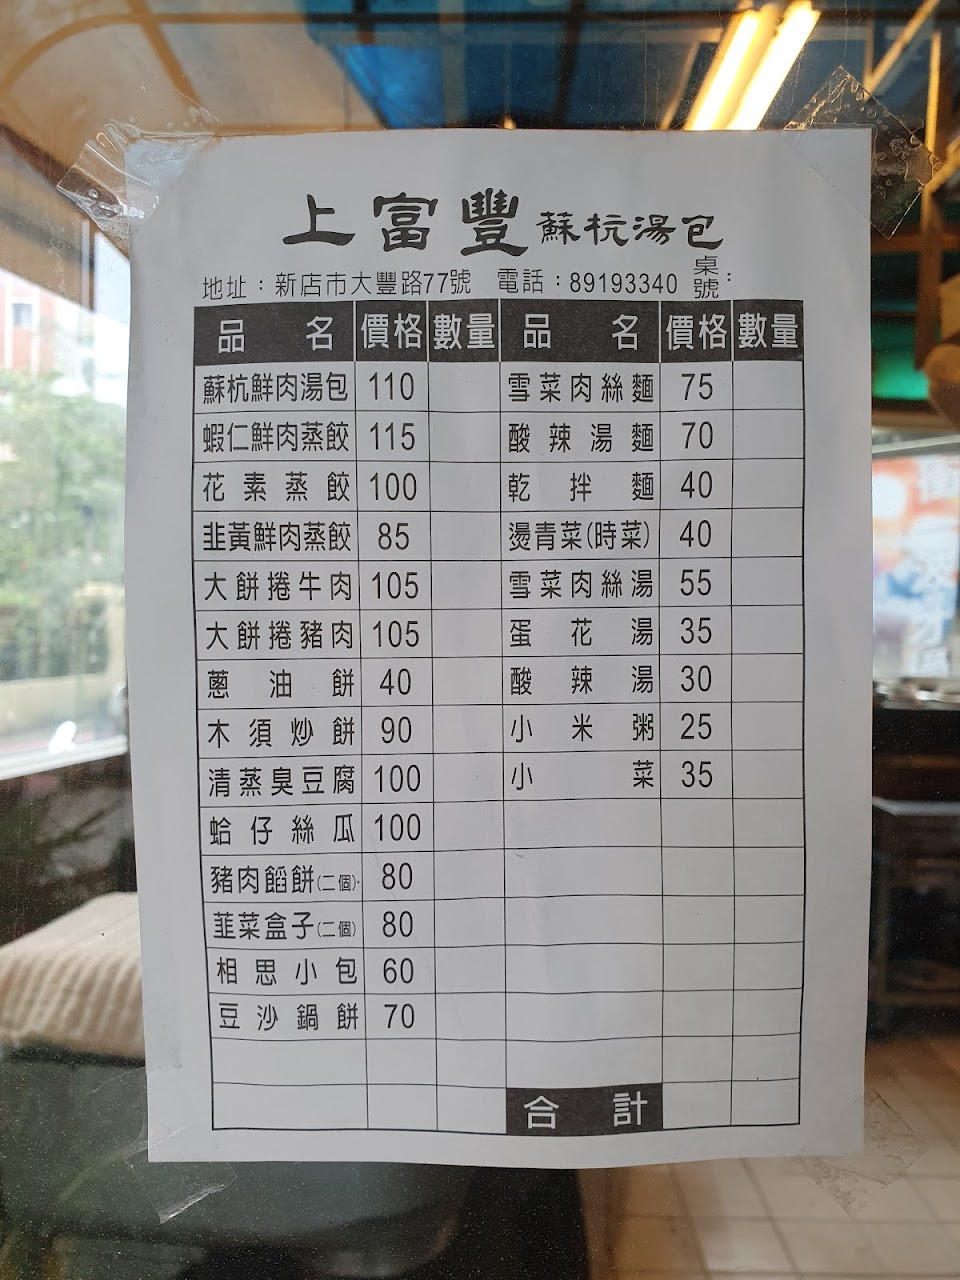 上富豐 蘇杭湯包
地址：新店市大豐路77號 電話：89193340 桌號：
品名 價格 數量 品名 價格 數量
蘇杭鮮肉湯包 110 雪菜肉絲麵 75
蝦仁鮮肉蒸餃 115 酸辣湯麵 70
花素蒸餃 100 乾拌麵 40
韭黃鮮肉蒸餃 85 燙青菜(時菜) 40
大餅捲牛肉 105 雪菜肉絲湯 55
大餅捲豬肉 105 蛋花湯 35
蔥油餅 40 酸辣湯 30
木須炒餅 90 小米粥 25
清蒸臭豆腐 100 小菜 35
蛤仔絲瓜 100
豬肉餡餅(二個) 80
韮菜盒子(二個) 80
相思小包 60
豆沙鍋餅 70
合計